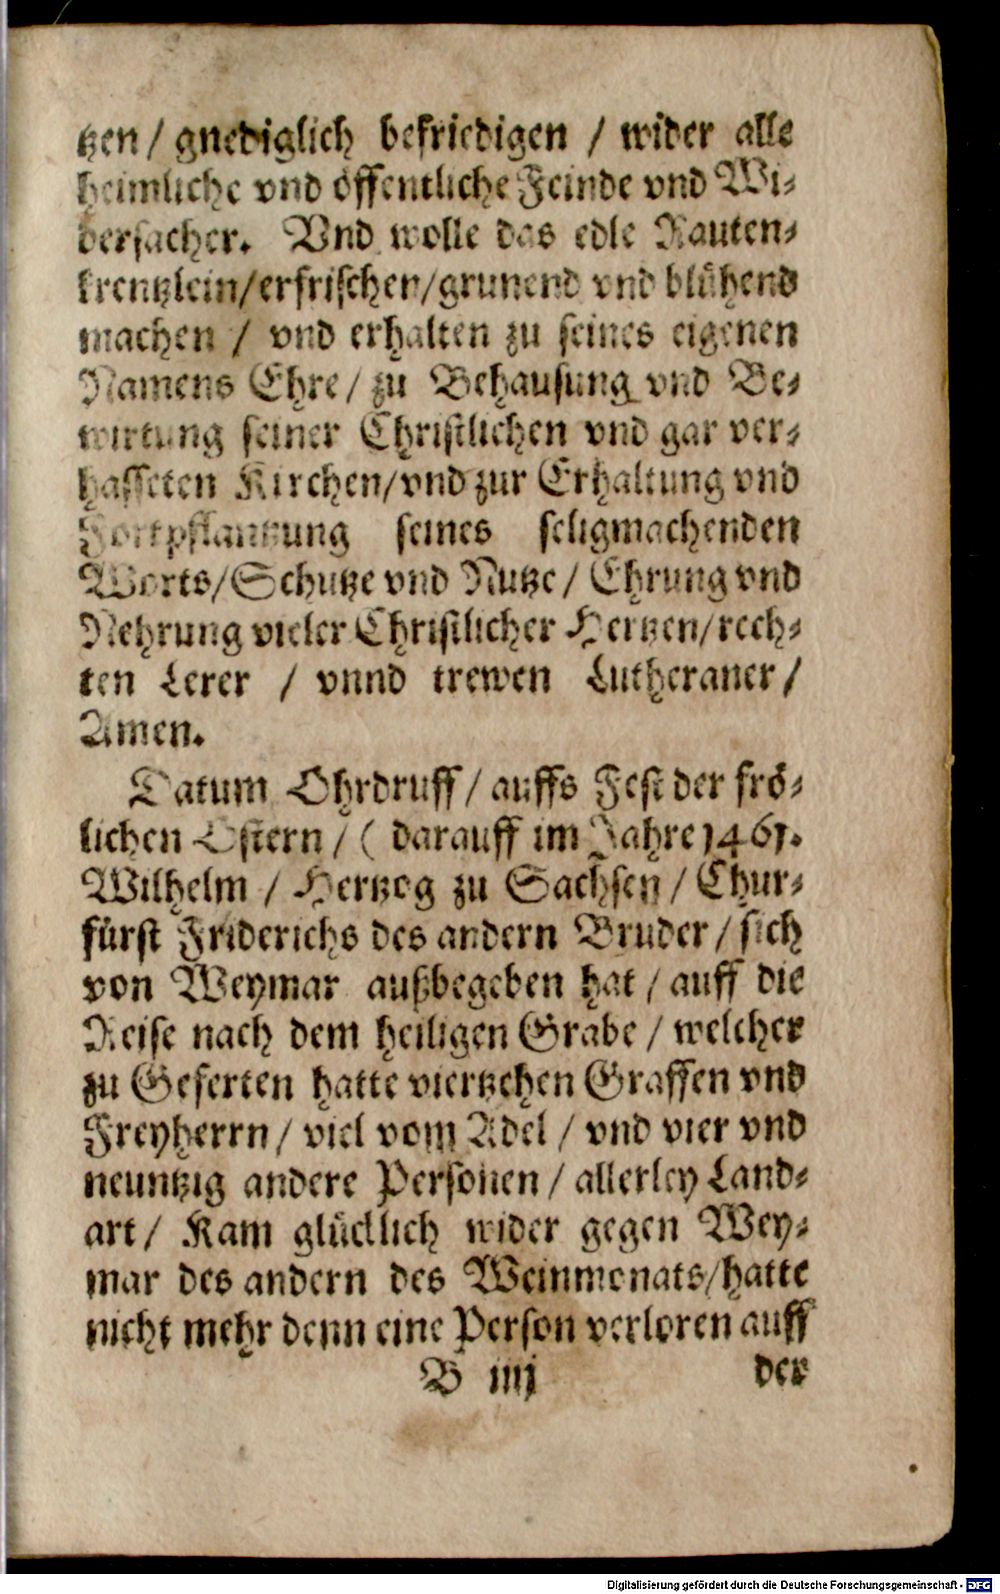 tzen / gnediglich befriedigen / wider alle
heimliche vnd öffentliche Feinde vnd Wi-
dersacher. Vnd wolle das edle Rauten-
krentzlein/erfrischen/grunend vnd blühend
machen / vnd erhalten zu seines eigenen
Namens Ehre / zu Behausung vnd Be-
wirtung seiner Christlichen vnd gar ver-
hasseten Kirchen/vnd zur Erhaltung vnd
Fortpflantzung seines seligmachenden
Worts/Schutze vnd Nutze / Ehrung vnd
Nehrung vieler Christlicher Hertzen/rech-
ten Lerer / vnnd trewen Lutheraner /
Amen.
Datum Ohrdruff / auffs Fest der frö-
lichen Ostern / ( darauff im Jahre 1461.
Wilhelm / Hertzog zu Sachsen / Chur-
fürst Friderichs des andern Bruder / sich
von Weymar außbegeben hat / auff die
Reise nach dem heiligen Grabe / welcher
zu Geferten hatte viertzehen Graffen vnd
Freyherrn / viel vom Adel / vnd vier vnd
neuntzig andere Personen / allerley Land-
art / Kam glücklich wider gegen Wey-
mar des andern des Weinmonats/hatte
nicht mehr denn eine Person verloren auff
B iiij der
Digitalisierung gefördert durch die Deutsche Forschungsgemeinschaft - DFG